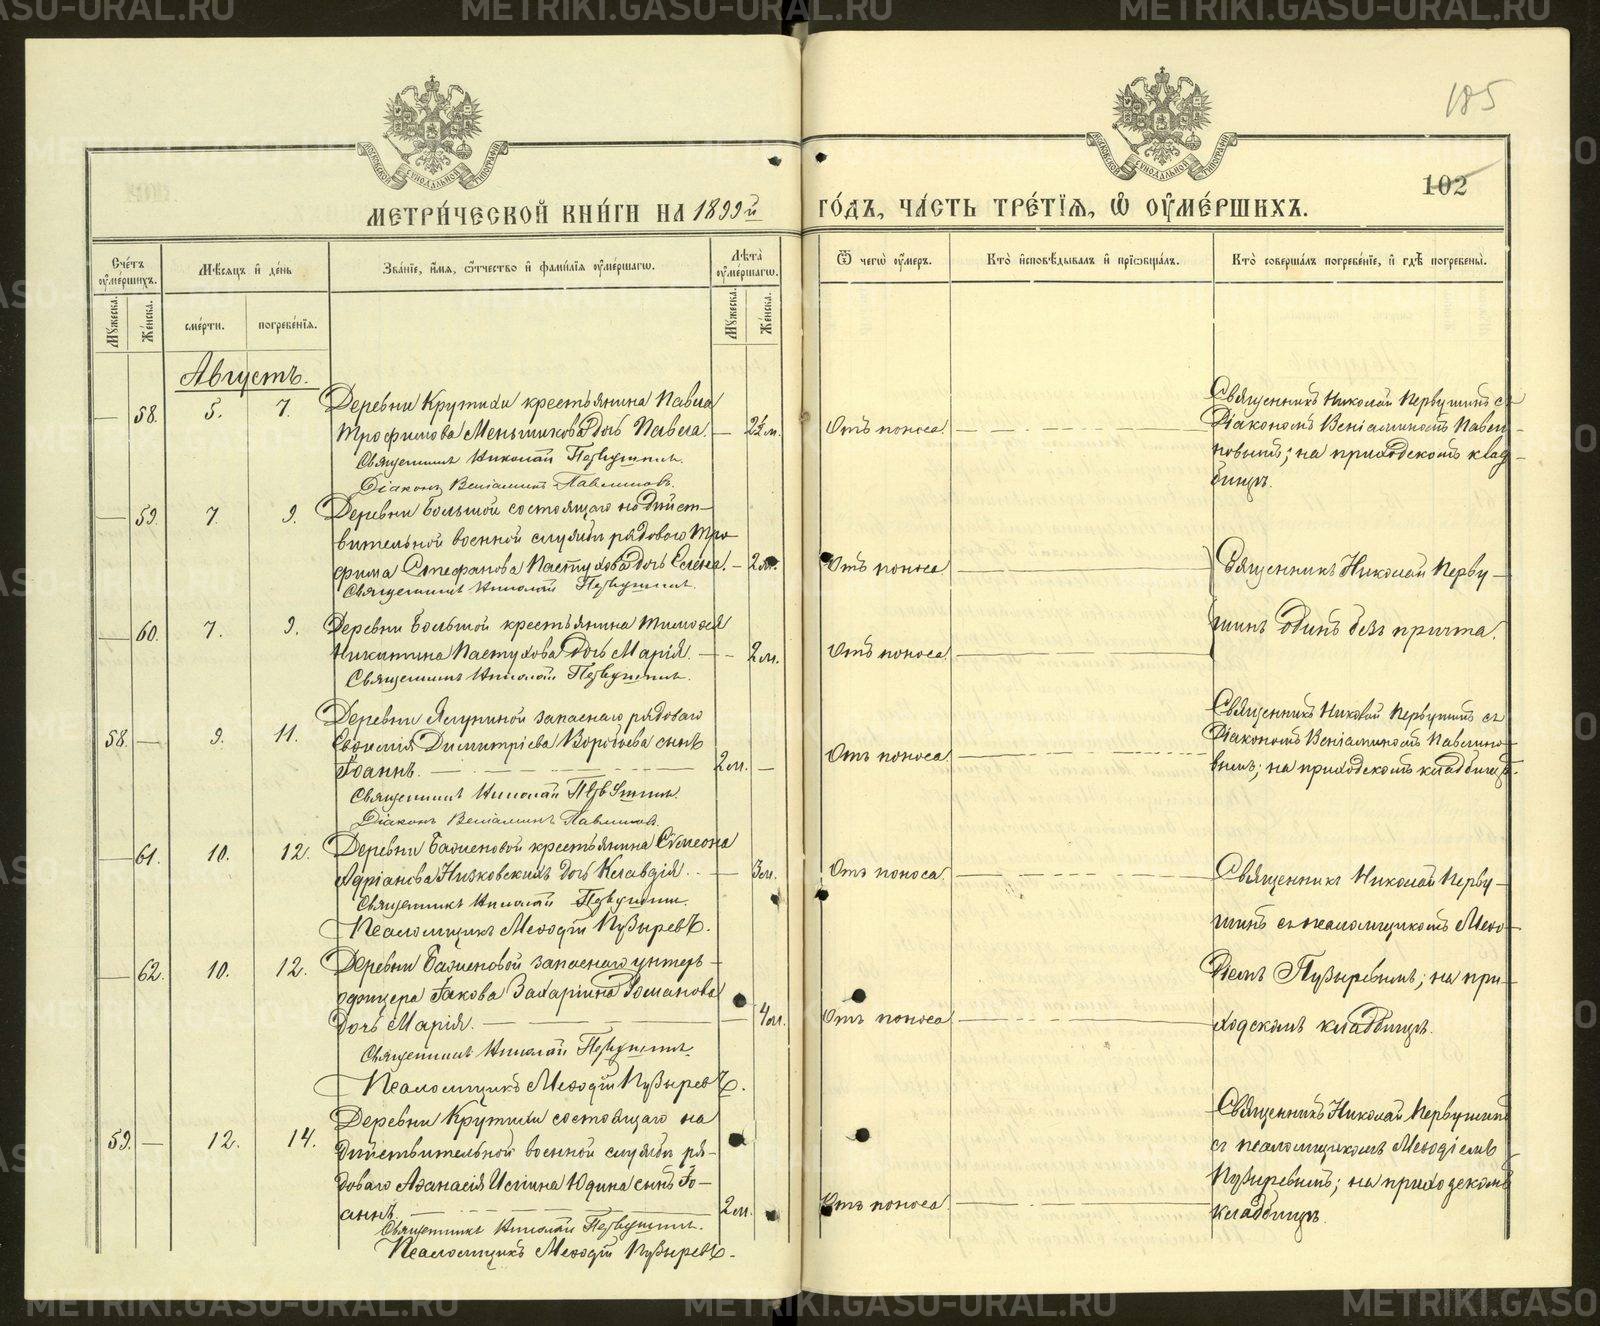 METRIKI.GASU-URAL.RU
185
102
МОСКОВСКОЙ СѴНОДАЛЬНОЙ ТИПОГРАФІИ
МОСКОВСКОЙ СѴНОДАЛЬНОЙ ТИПОГРАФІИ
МЕТРИ́ЧЕСКОЙ КНИ́ГИ НА 1899й
ГО́ДЪ, ЧА́СТЬ ТРЕ́ТІѦ, Ѡ ОУМЕ́РШИХЪ.
Сче́тъ оуме́ршихъ.
Мꙋжеска.
Же́нска.
Мѣ́сяцъ и҆ де́нь
сме́рти.
погребе́нїѧ.
Зва́нїе, и҆́мѧ, ѻ҆́тчество и҆ фами́лїѧ оуме́ршагѡ.
Лѣ́та оуме́ршагѡ.
Мꙋжеска.
Же́нска.
Ѿ чегѡ̀ оу́меръ.
Кто̀ и҆сповѣ́дывалъ и҆ прїѡбща́лъ.
Кто̀ соверша́лъ погребе́нїе, и҆ гдѣ̀ погребены̀.
Августъ.
— 58. 5. 7. Деревни Крутихи крестьянина Павла
Трофимова Меньшикова дочь Павла. — 2½ м.
Священникъ Николай Первушинъ.
Діаконъ Веніаминъ Павлиновъ.
Отъ поноса.
Священникъ Николай Первушинъ съ
Діакономъ Веніаминомъ Павли-
новымъ; на приходскомъ клад-
бищѣ.
— 59. 7. 9. Деревни Большой состоящаго на дѣйст-
вительной военной службѣ рядового Тро-
фима Стефанова Пастухова дочь Елена. — 2 м.
Священникъ Николай Первушинъ.
Отъ поноса
Священникъ Николай Перву-
шинъ одинъ безъ причта.
— 60. 7. 9. Деревни Большой крестьянина Тимоѳея
Никитина Пастухова дочь Марія. — 2 м.
Священникъ Николай Первушинъ.
Отъ поноса
58. — 9. 11. Деревни запаснаго рядоваго
Евѳимія Димитріева Воробьева сынъ
Іоаннъ. 2 м. —
Священникъ Николай Первушинъ.
Діаконъ Веніаминъ Павлиновъ.
Отъ поноса
Священникъ Николай Первушинъ съ
Діакономъ Веніаминомъ Павлино-
вымъ; на приходскомъ кладбищѣ.
— 61. 10. 12. Деревни Баженовой крестьянина Сѵмеона
Адріанова Низковскихъ дочь Клавдія. — 3 м.
Священникъ Николай Первушинъ.
Псаломщикъ Меѳодій Пузыревъ.
Отъ поноса
Священникъ Николай Перву-
шинъ съ псаломщикомъ Меѳо-
діемъ Пузыревымъ; на при-
ходскомъ кладбищѣ.
— 62. 10. 12. Деревни Баженовой запаснаго унтеръ-
офицера Іакова Захаріина Романова
дочь Марія. — 4 м.
Священникъ Николай Первушинъ.
Псаломщикъ Меѳодій Пузыревъ.
Отъ поноса
59. — 12. 14. Деревни Крутихи состоящаго на
дѣйствительной военной службѣ ря-
доваго Аѳанасія Юдина сынъ Іо-
аннъ. 2 м.
Священникъ Николай Первушинъ.
Псаломщикъ Меѳодій Пузыревъ.
Отъ поноса
Священникъ Николай Первушинъ
съ псаломщикомъ Меѳодіемъ
Пузыревымъ; на приходскомъ
кладбищѣ.
METRIKI.GASU-URAL.RU